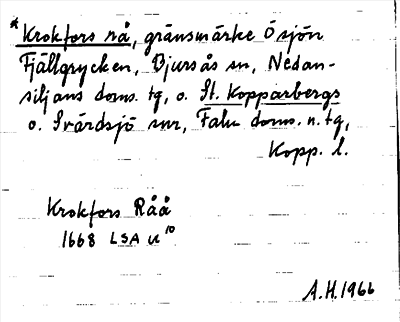 * Krokfors rå, gränsmärke Ö sjön
Fjällgrycken, Bjursås sn, Nedan-
siljans doms. tg, o. St. Kopparbergs
o. Svärdsjö snr, Falu doms. n. tg,
Kopp. l.
Krokfors Råå
1668 LSA U 10
A.H. 1966